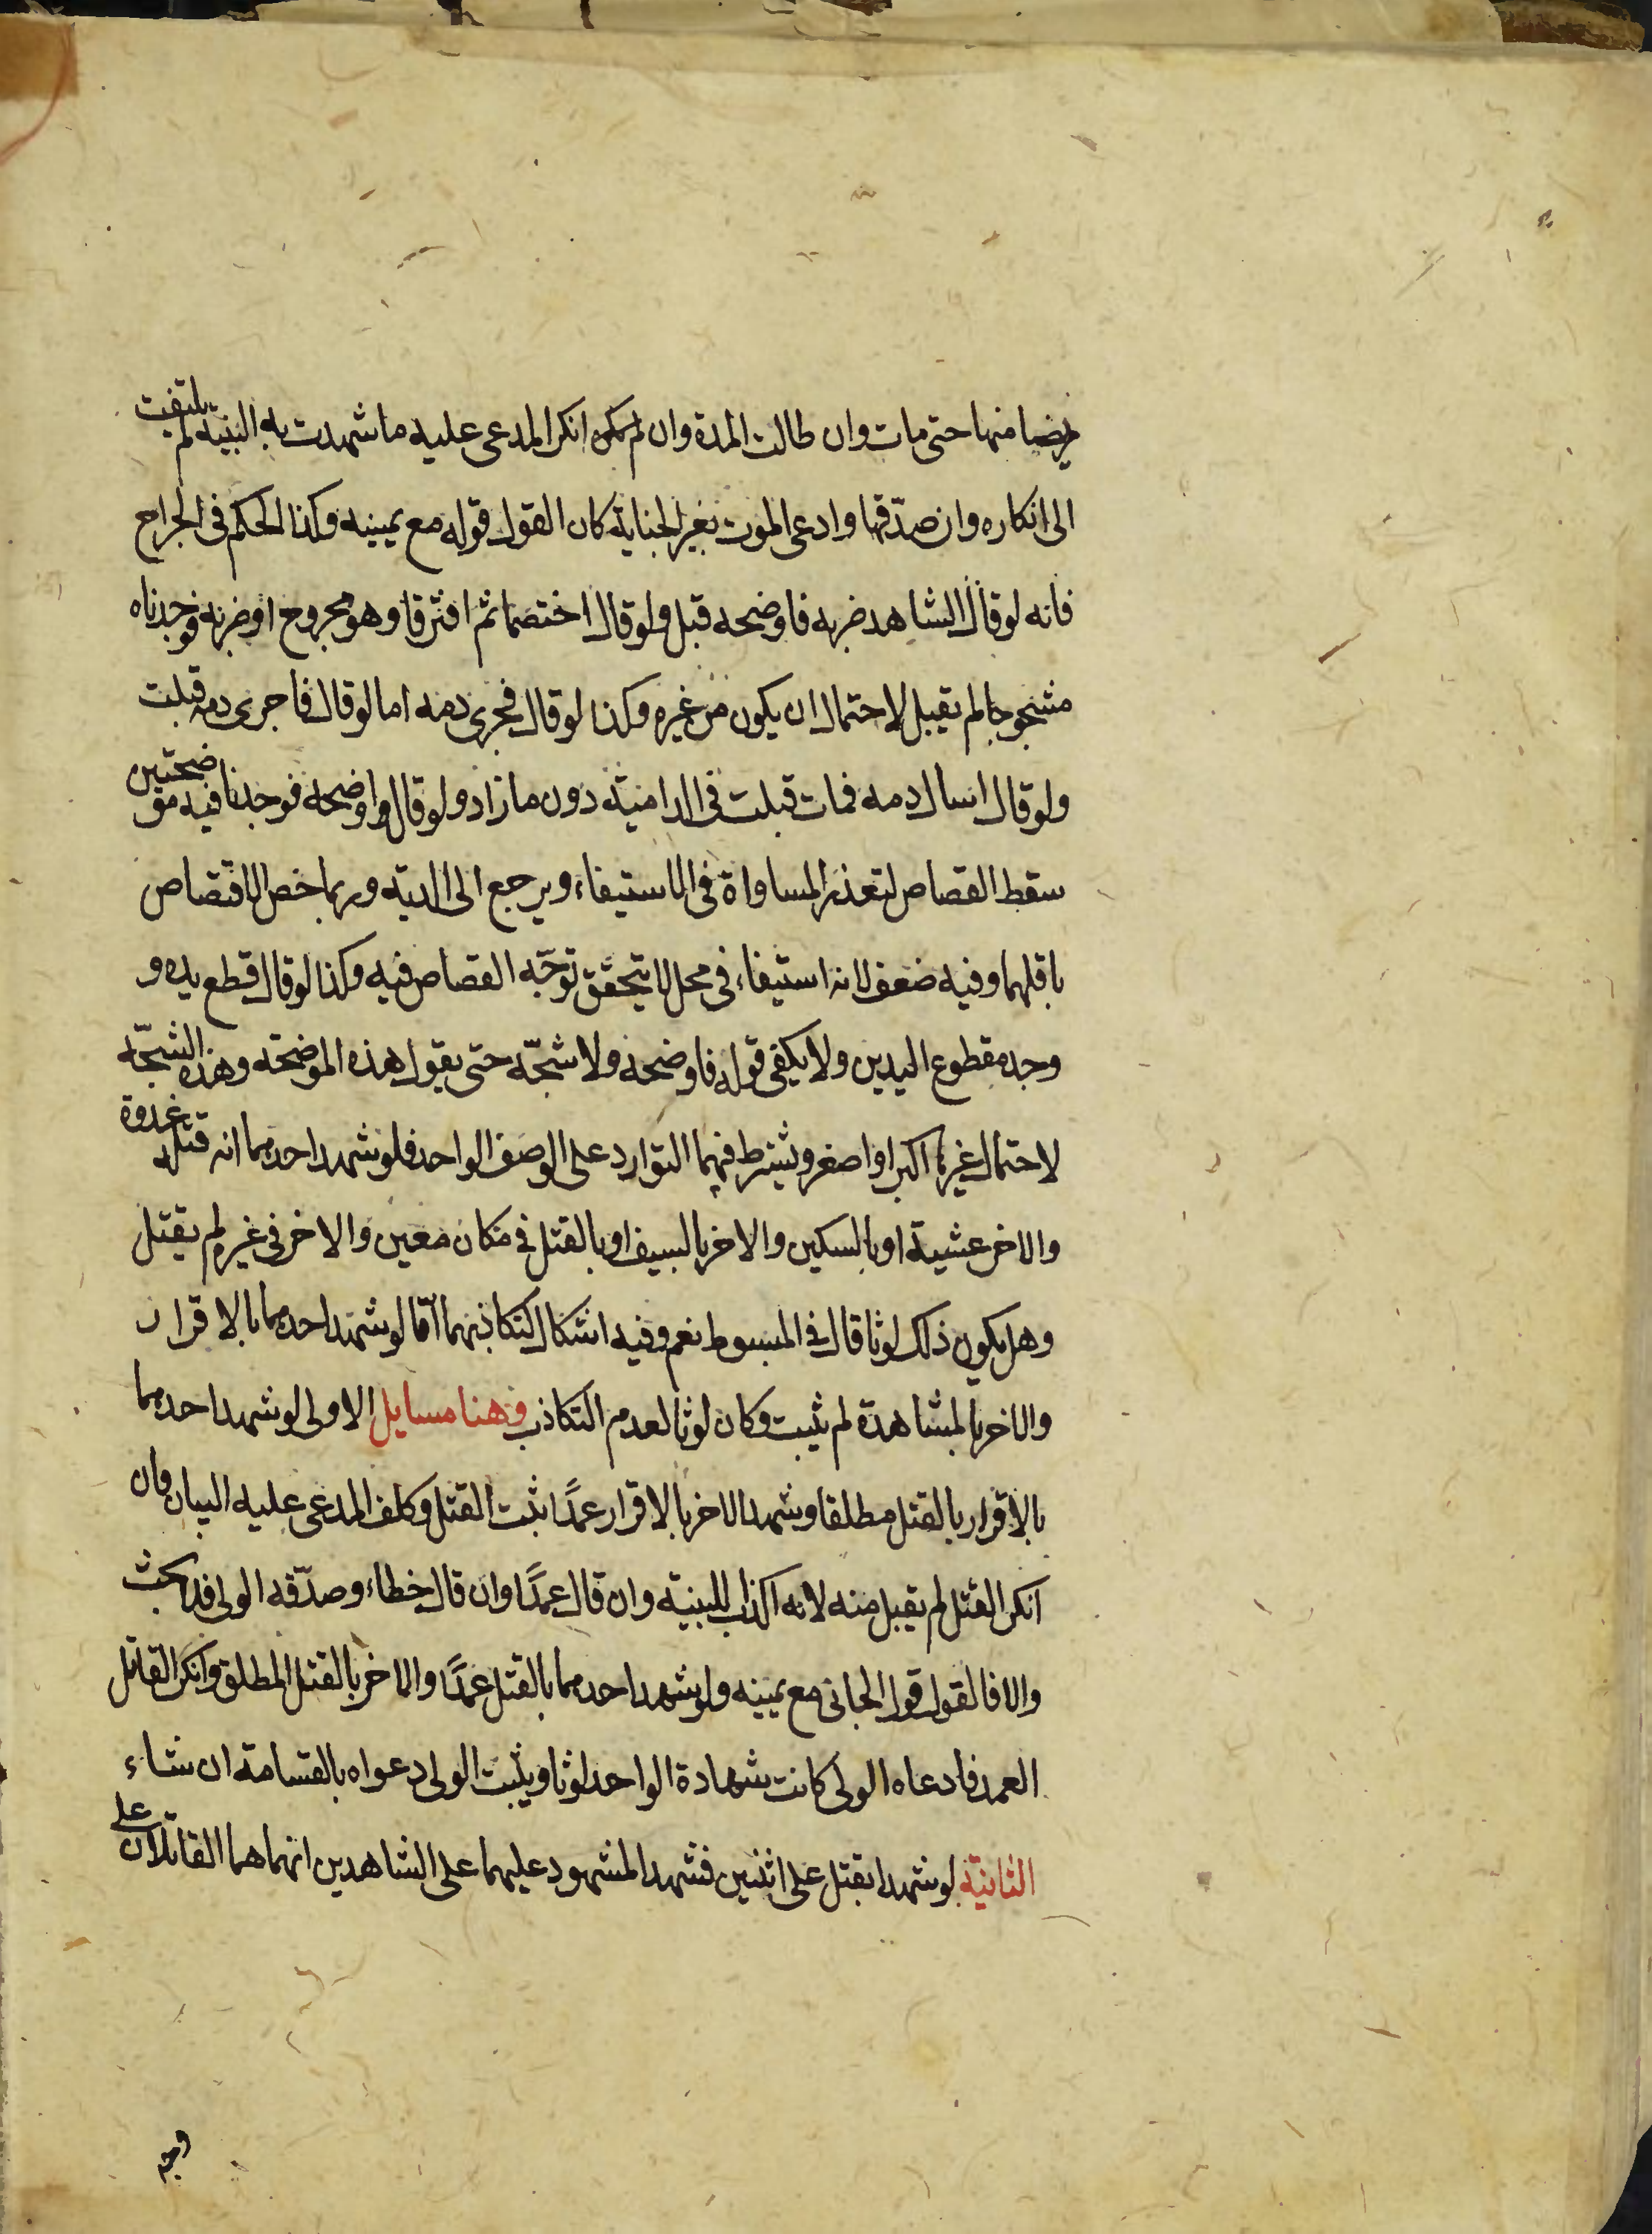 مريضا منها حتى مات وان طالت المدة وان لم يكن انكر المدعى عليه ما شهدت به البينة لم يلتفت
الى انكاره وان صدّقها وادعى الموت بغير الجناية كان القول قوله مع يمينه وكذا الحكم فى الجراح
فانه لو قال الشاهد ضربه فاوضحه قبل ولو قال اختصما ثم افترقا وهو مجروح او ضربه فوجدناه
مشجوجا لم تقبل لاحتمال ان يكون من غيره وكذا لو قال فجرى دمه اما لو قال فاجرى دمه قبلت
ولو قال اسال دمه فمات قبلت فى الدامية دون ما زاد ولو قال اوضحه فوجدنا فيه موضحتين
سقط القصاص لتعذر المساواة فى الاستيفاء ويرجع الى الدية وربما خص الاقتصاص
باقلهما وفيه ضعف لانه استيفاء فى محل لا يتحقق توجّه القصاص فيه وكذا لو قال قطع يده و
وجد مقطوع اليدين ولا يكفى قوله فاوضحه ولا شجّه حتى يقول هذه الموضحة وهذه الشجّة
لاحتمال غيرها اكبر او اصغر ويشترط فيهما التوارد على الوصف الواحد فلو شهد احدهما انه قتله غدوة
والاخر عشية او بالسكين والاخر بالسيف او بالقتل فى مكان معين والاخر فى غيره لم يقبل
وهل يكون ذلك لوثا قال فى المبسوط نعم وفيه اشكال لتكاذبهما امّا لو شهد احدهما بالاقرار
والاخر بالمشاهدة لم يثبت وكان لوثا لعدم التكاذب وهنا مسايل الاولى لو شهد احدهما
بالاقرار بالقتل مطلقا وشهد الاخر بالاقرار عمدًا ثبت القتل وكلف المدعى عليه البيان فان
انكر القتل لم يقبل منه لانه اكذاب للبينة وان قال عمدًا وان قال خطاء وصدّقه الولى فلا بحث
والا فالقول قول الجانى مع يمينه ولو شهد احدهما بالقتل عمدًا والاخر بالقتل المطلق وانكر القاتل
العمد فادعاه الولى كانت شهادة الواحد لوثا ويثبت الولى دعواه بالقسامة ان شاء
الثانية لو شهدا بقتل على اثنين فشهد المشهود عليهما على الشاهدين انهما هما القاتلان على
وجه